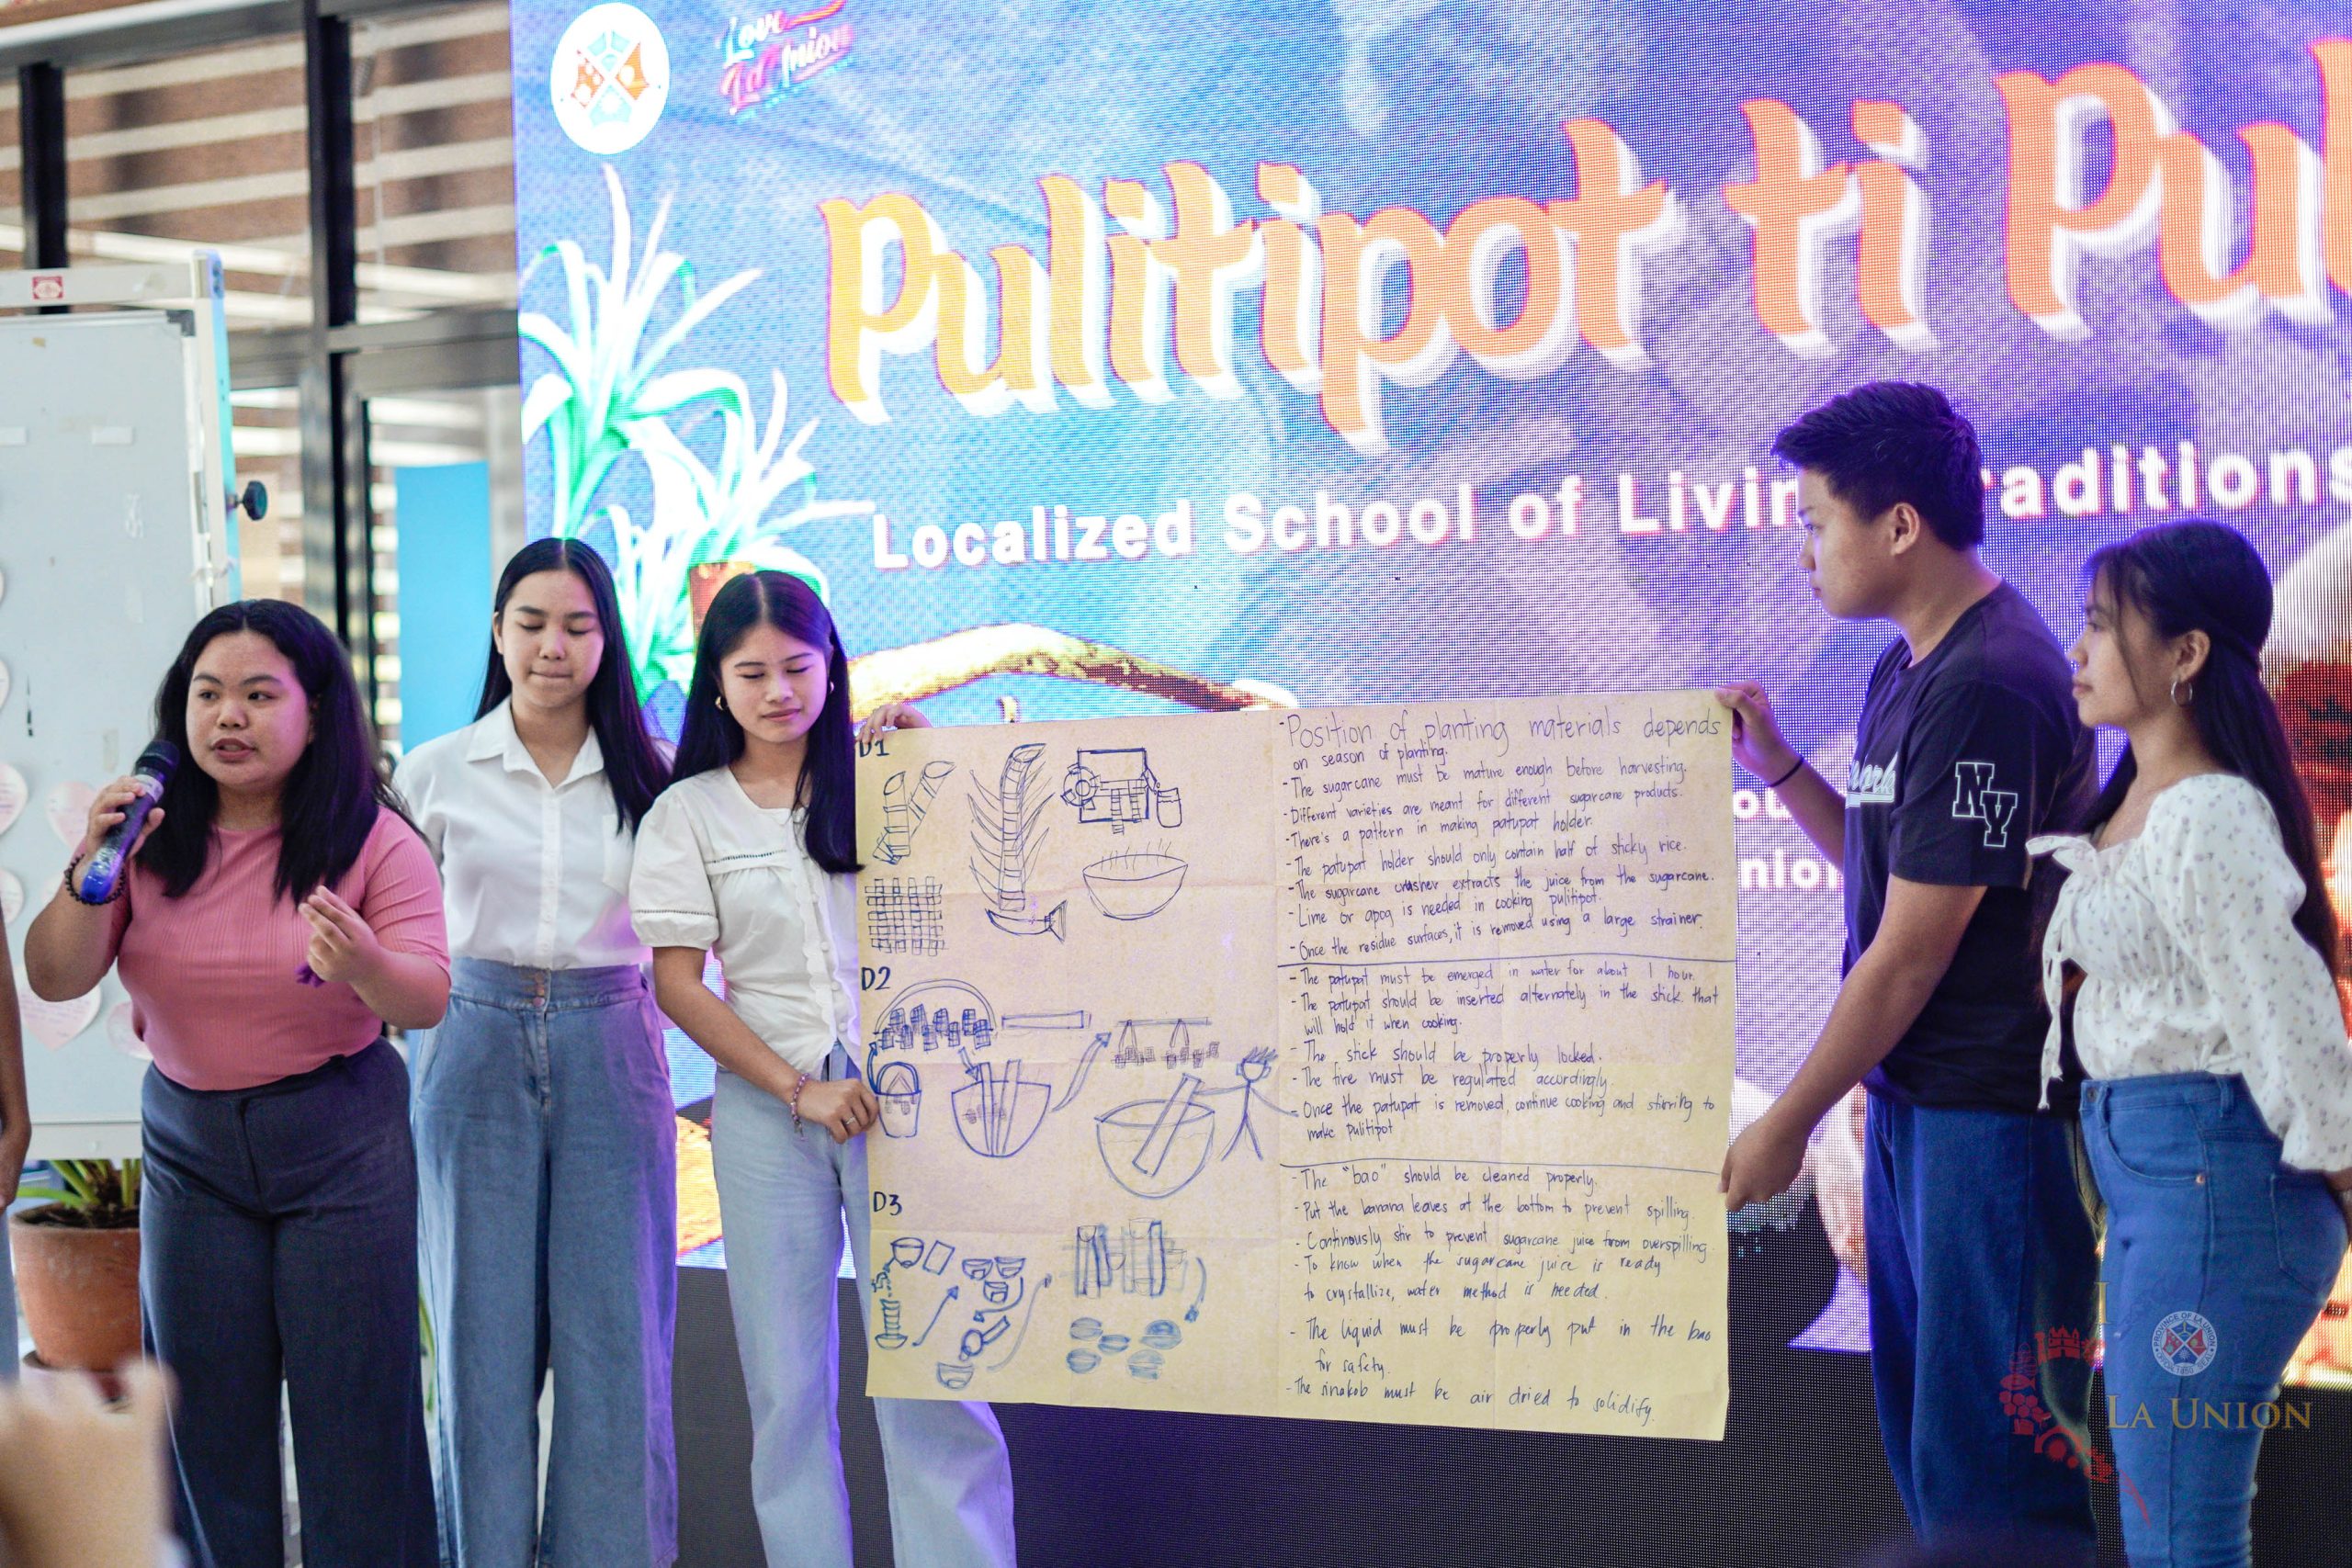 Love
La Union
Pulitipot ti Pul
Localized School of Livin raditions
nion
NY
D1
- Position of planting materials depends
on season of planting.
- The sugarcane must be mature enough before harvesting.
- Different varieties are meant for different sugarcane products.
- There's a pattern in making patupat holder.
- The patupat holder should only contain half of sticky rice.
- The sugarcane crusher extracts the juice from the sugarcane.
- Lime or apog is needed in cooking pulitipot.
- Once the residue surfaces, it is removed using a large strainer.
D2
- The patupat must be emerged in water for about 1 hour.
- The patupat should be inserted alternately in the stick that
will hold it when cooking.
- The stick should be properly locked.
- The fire must be regulated accordingly.
- Once the patupat is removed, continue cooking and stirring to
make pulitipot
D3
- The "bao" should be cleaned properly.
- Put the banana leaves at the bottom to prevent spilling.
- Continously stir to prevent sugarcane juice from overspilling.
- To know when the sugarcane juice is ready
to crystallize, water method is needed.
- The liquid must be properly put in the bao
for safety.
- The sinakob must be air dried to solidify.
PROVINCE OF LA UNION
LA UNION